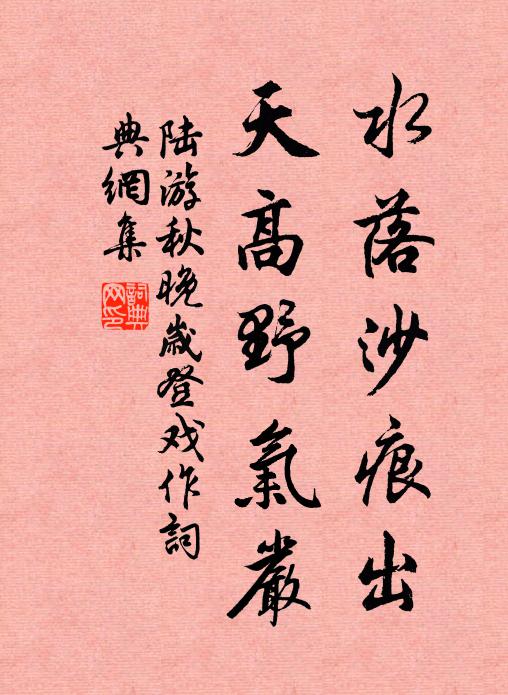 水落沙痕出
天高野氣嚴
陆游秋晚歲登戏作詞
典網集
詞典網印